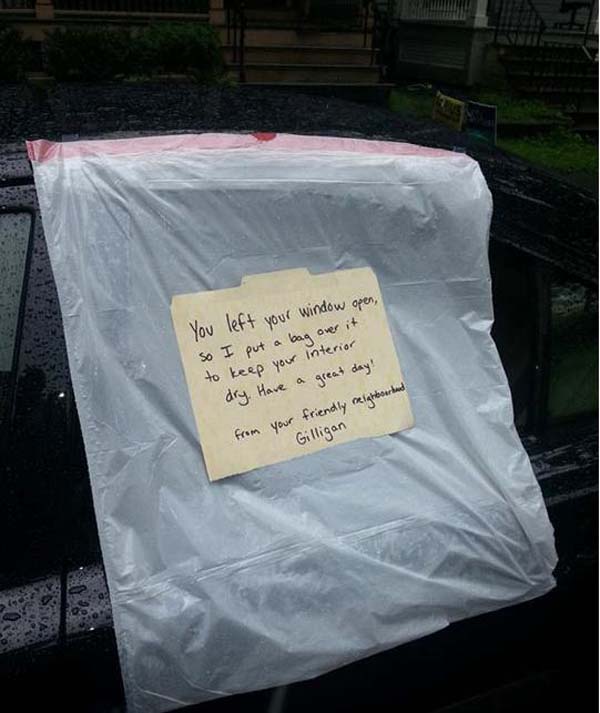 You left your window open,
so I put a bag over it
to keep your interior
dry. Have a great day!
from your friendly neighboorhood
Gilligan